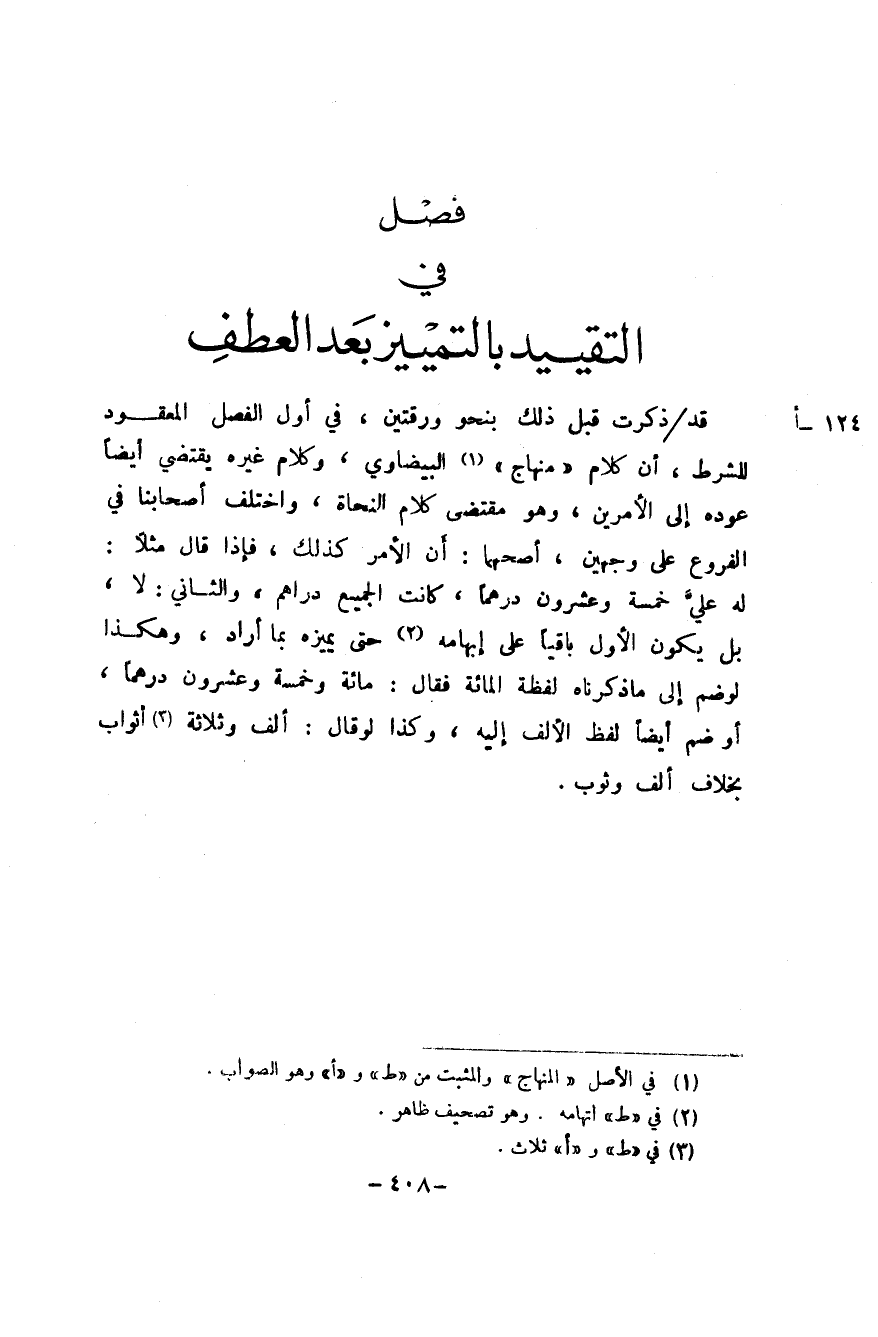 فصل
في
التقييد بالتمييز بعد العطف
١٢٤ ــ أ
قد/ذكرت قبل ذلك بنحو ورقتين ، في أول الفصل المعقود
للشرط ، أن كلام « منهاج » (١) البيضاوي ، وكلام غيره يقتضي أيضاً
عوده إلى الأمرين ، وهو مقتضى كلام النحاة ، واختلف أصحابنا في
الفروع على وجهين ، أصحهما : أن الأمر كذلك ، فإذا قال مثلاً :
له عليَّ خمسة وعشرون درهماً ، كانت الجميع دراهم ، والثاني : لا ،
بل يكون الأول باقياً على إبهامه (٢) حتى يميزه بما أراد ، وهكذا
لوضم إلى ماذكرناه لفظة المائة فقال : مائة وخمسة وعشرون درهماً ،
أو ضم أيضاً لفظ الألف إليه ، وكذا لوقال : ألف وثلاثة (٣) أثواب
بخلاف ألف وثوب .
(١) في الأصل « المنهاج » والمثبت من «ط» و «أ» وهو الصواب .
(٢) في «ط» اتهامه . وهو تصحيف ظاهر .
(٣) في «ط» و «أ» ثلاث .
– ٤٠٨ –